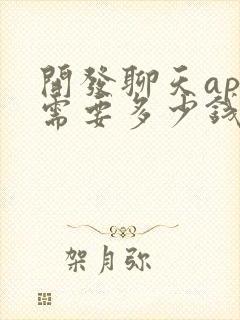 開發聊天ap
需要多少錢
架月弥